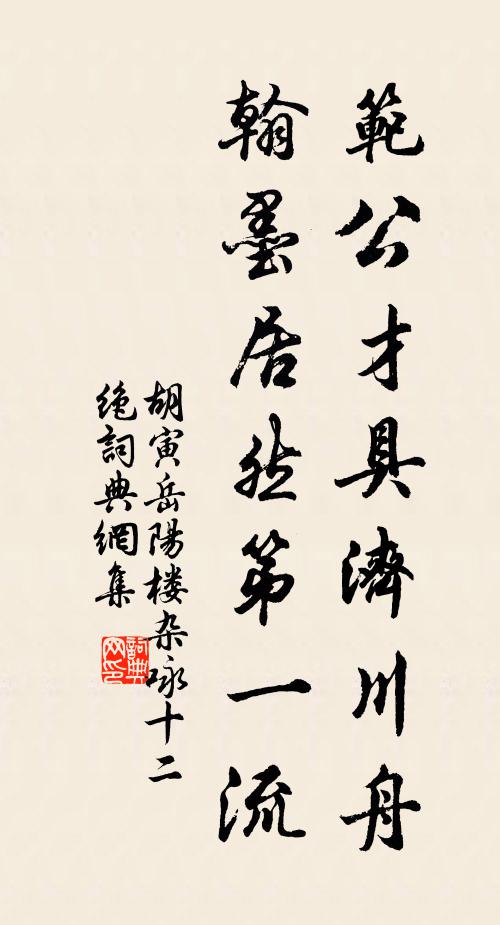 範公才具濟川舟
翰墨居然第一流
胡寅岳陽楼杂咏十二
绝詞典網集
詞典
网印